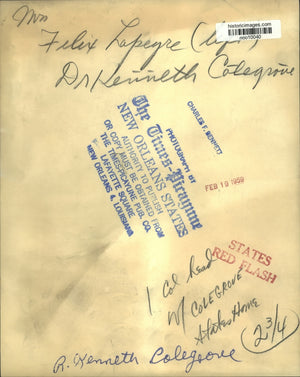 historicimages.com
Mrs
Felix Lapeyre (left)
Dr Kenneth Colegrove
The Times-Picayune
NEW ORLEANS STATES
AUTHORITY TO PUBLISH
OR COPY MUST BE OBTAINED FROM
THE TIMES-PICAYUNE PUB. CO.
LAFAYETTE SQUARE
NEW ORLEANS 6, LOUISIANA
PHOTOGRAPH BY
CHARLES F.
FEB 10 1959
STATES
RED FLASH
1 Col head
W/ COLEGROVE
States Home
2 3/4
R. Kenneth Colegrove